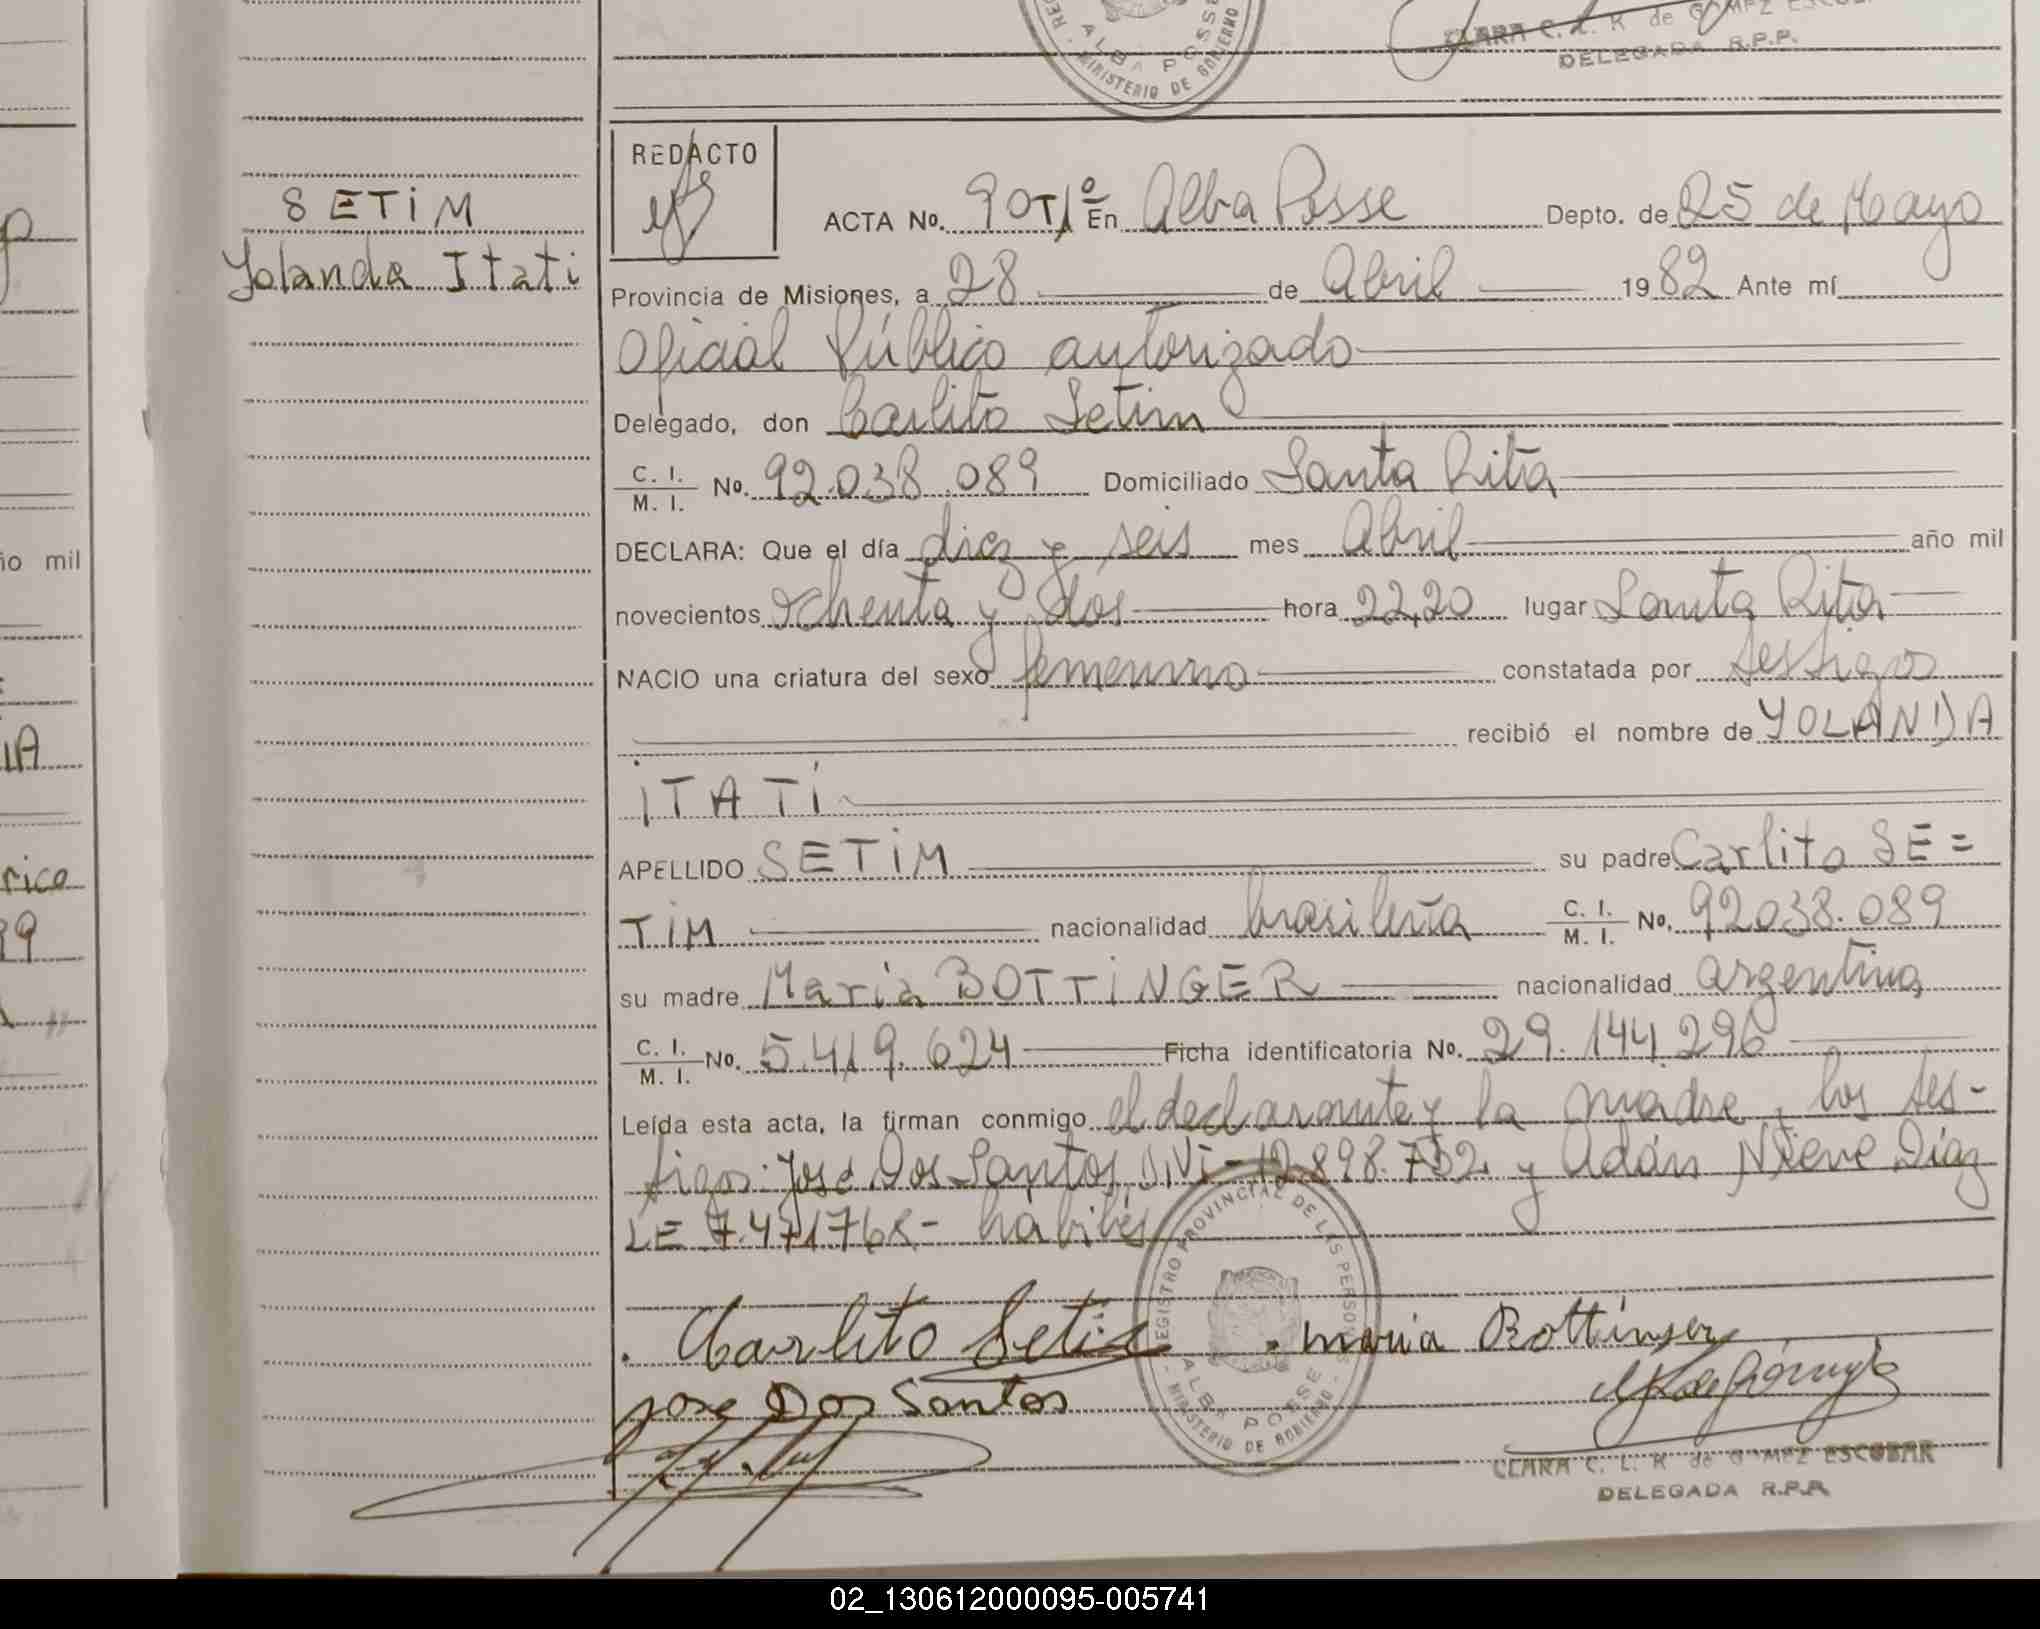 CLARA C. L. R de GOMEZ ESCOBAR
DELEGADA R.P.P.
ALBA POSSE
MINISTERIO DE GOBIERNO
REDACTO
SETIM
Yolanda Itati
ACTA No. 90 T1º En Alba Posse Depto. de 25 de Mayo
Provincia de Misiones, a 28 de Abril 1982 Ante mí
Oficial Público autorizado
Delegado, don Carlito Setim
C. I.
M. I. No. 92.038.089 Domiciliado Santa Rita
DECLARA: Que el día diez y seis mes Abril año mil
novecientos ochenta y dos hora 22,20 lugar Santa Rita
NACIO una criatura del sexo femenino constatada por testigos
recibió el nombre de YOLANDA
ITATÍ
APELLIDO SETIM su padre Carlito SE=
TIM nacionalidad brasileña C. I.
M. I. No. 92038.089
su madre María BOTTINGER nacionalidad argentina
C. I.
M. I. No. 5.419.624 Ficha identificatoria No. 29.144.296
Leída esta acta, la firman conmigo el declarante y la madre, los tes-
tigos: José Dos Santos, DNI-12.898.752 y Adán Nieve Díaz
LE 7.471768- habibés
REGISTRO PROVINCIAL DE LAS PERSONAS
ALBA POSSE
MINISTERIO DE GOBIERNO
Carlito Setim maria Bottinger
Jose Dos Santos
CLARA C. L. R de GOMEZ ESCOBAR
DELEGADA R.P.P.
ño mil
IA
rico
02_130612000095-005741